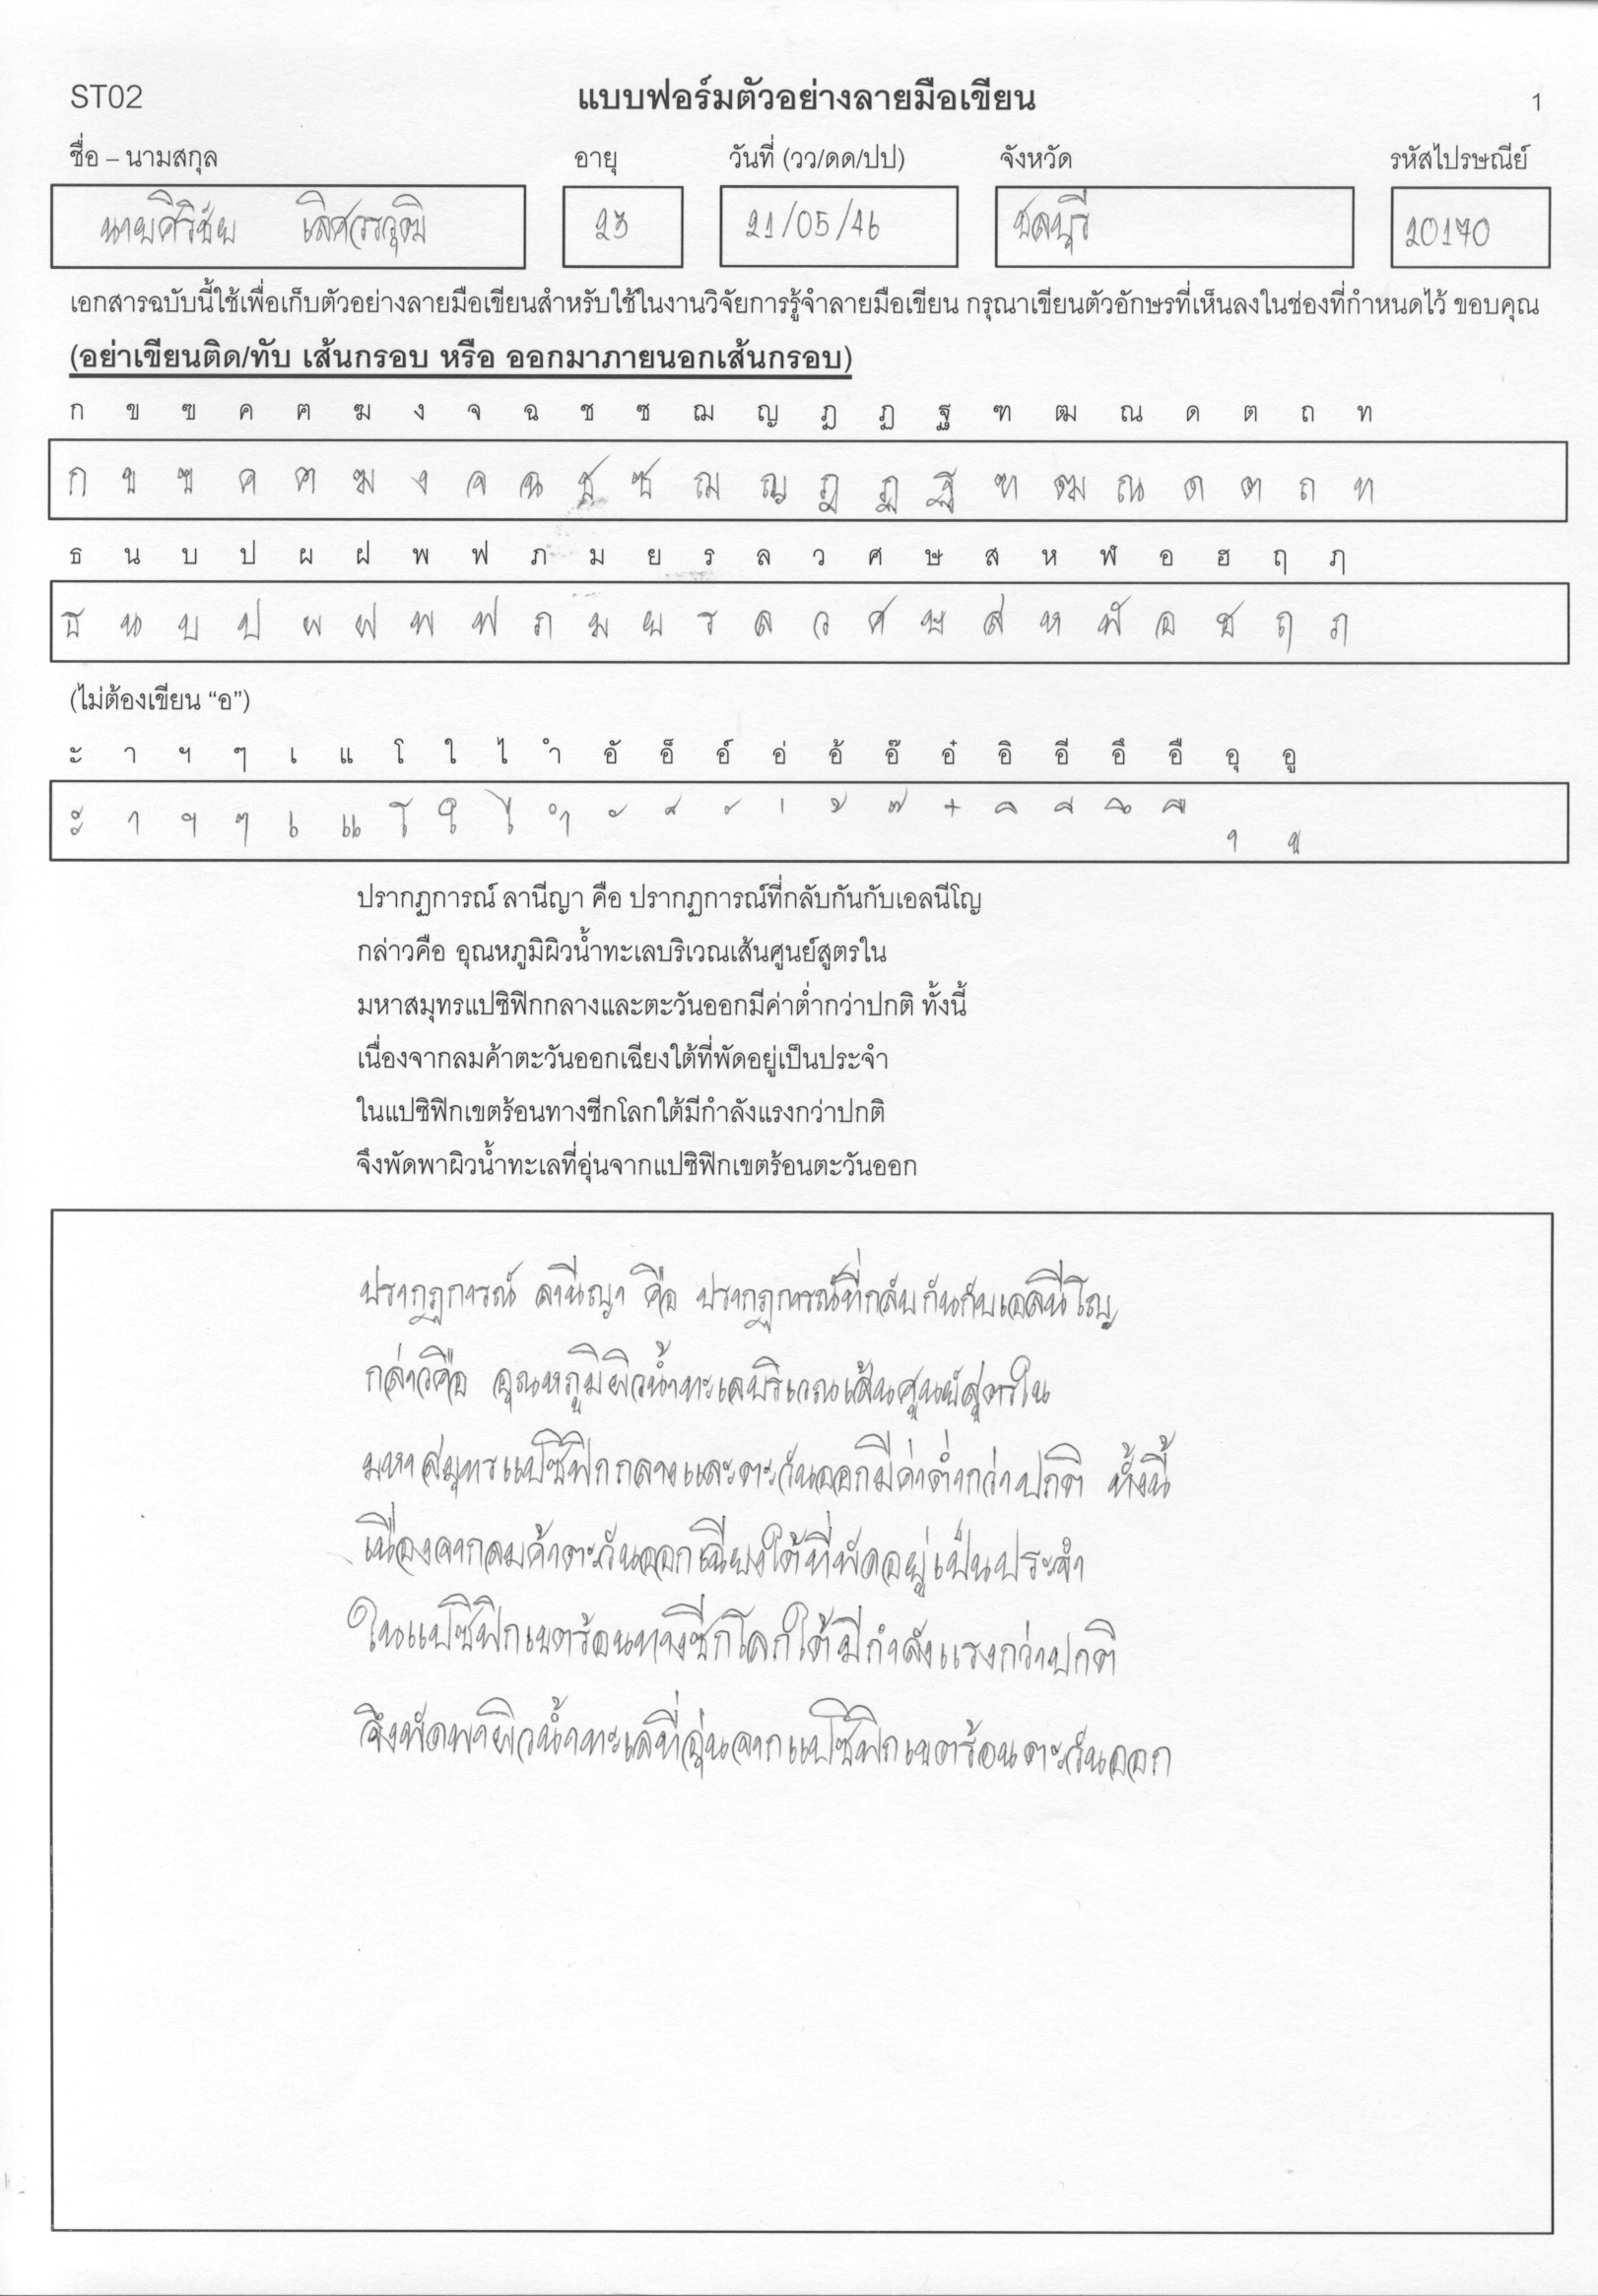 ST02 แบบฟอร์มตัวอย่างลายมือเขียน 1
ชื่อ – นามสกุล อายุ วันที่ (วว/ดด/ปป) จังหวัด รหัสไปรษณีย์
นายศิริชัย เลิศวรวุฒิ 23 21/05/46 ชลบุรี 20170
เอกสารฉบับนี้ใช้เพื่อเก็บตัวอย่างลายมือเขียนสำหรับใช้ในงานวิจัยการรู้จำลายมือเขียน กรุณาเขียนตัวอักษรที่เห็นลงในช่องที่กำหนดไว้ ขอบคุณ
(อย่าเขียนติด/ทับ เส้นกรอบ หรือ ออกมาภายนอกเส้นกรอบ)
ก ข ฃ ค ฅ ฆ ง จ ฉ ช ซ ฌ ญ ฎ ฏ ฐ ฑ ฒ ณ ด ต ถ ท
ก ข ฃ ค ฅ ฆ ง จ ฉ ช ซ ฌ ญ ฎ ฏ ฐ ฑ ฒ ณ ด ต ถ ท
ธ น บ ป ผ ฝ พ ฟ ภ ม ย ร ล ว ศ ษ ส ห ฬ อ ฮ ฤ ฦ
ธ น บ ป ผ ฝ พ ฟ ภ ม ย ร ล ว ศ ษ ส ห ฬ อ ฮ ฤ ภ
(ไม่ต้องเขียน “อ”)
ะ า ฯ ๆ เ แ โ ใ ไ ำ อั อ็ อ์ อ่ อ้ อ๊ อ๋ อิ อี อึ อื อุ อู
ะ า ฯ ๆ เ แ โ ใ ไ ำ ั ็ ์ ่ ้ ๊ ๋ ิ ี ึ ื ุ ู
ปรากฏการณ์ ลานีญา คือ ปรากฏการณ์ที่กลับกันกับเอลนีโญ
กล่าวคือ อุณหภูมิผิวน้ำทะเลบริเวณเส้นศูนย์สูตรใน
มหาสมุทรแปซิฟิกกลางและตะวันออกมีค่าต่ำกว่าปกติ ทั้งนี้
เนื่องจากลมค้าตะวันออกเฉียงใต้ที่พัดอยู่เป็นประจำ
ในแปซิฟิกเขตร้อนทางซีกโลกใต้มีกำลังแรงกว่าปกติ
จึงพัดพาผิวน้ำทะเลที่อุ่นจากแปซิฟิกเขตร้อนตะวันออก
ปรากฏการณ์ ลานีญา คือ ปรากฏการณ์ที่กลับกันกับเอลนีโญ
กล่าวคือ อุณหภูมิผิวน้ำทะเลบริเวณเส้นศูนย์สูตรใน
มหาสมุทรแปซิฟิกกลางและตะวันออกมีค่าต่ำกว่าปกติ ทั้งนี้
เนื่องจากลมค้าตะวันออกเฉียงใต้ที่พัดอยู่เป็นประจำ
ในแปซิฟิกเขตร้อนทางซีกโลกใต้มีกำลังแรงกว่าปกติ
จึงพัดพาผิวน้ำทะเลที่อุ่นจากแปซิฟิกเขตร้อนตะวันออก